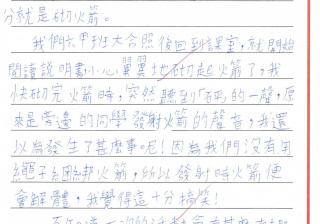 分就是砌火箭。
我們六甲班大合照後回到課室,就開始
閱讀說明書小心翼翼地砌起火箭了,我
快砌完火箭時,突然聽到「砰」的一聲,原
來是旁邊的同學發射火箭的聲音,我還
以為發生了甚麼事呢!因為我們沒有用
繩子綑綁火箭,所以發射時火箭便
會解體,我覺得這十分搞笑!